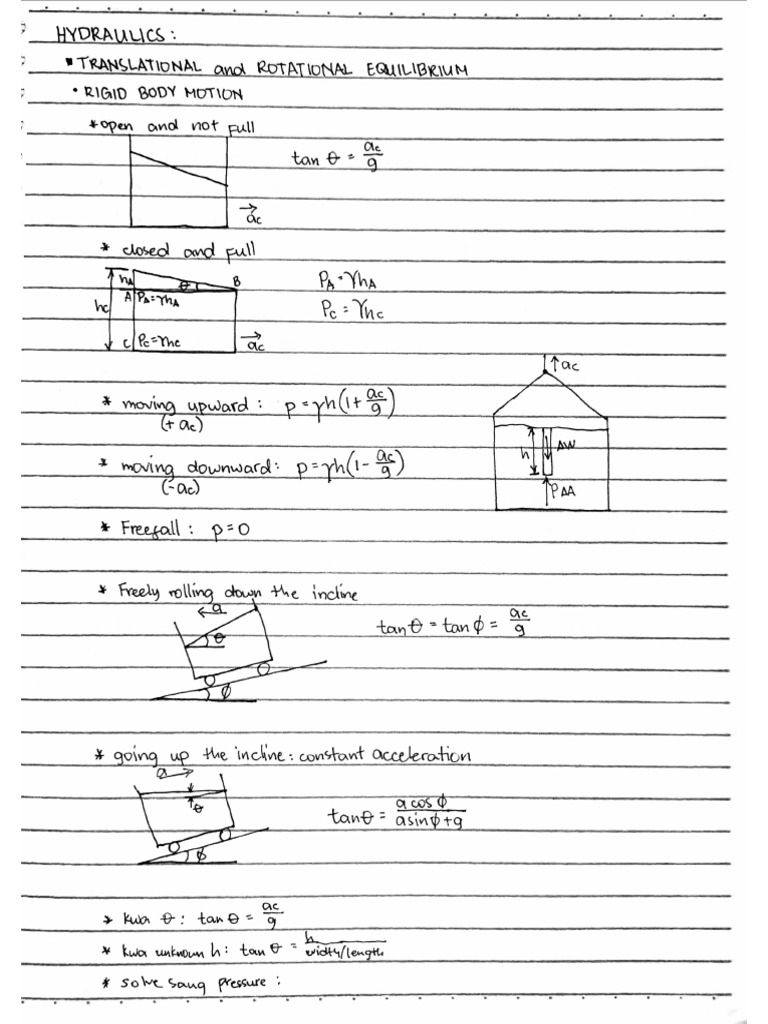 HYDRAULICS:
• TRANSLATIONAL and ROTATIONAL EQUILIBRIUM
• RIGID BODY MOTION
* open and not full
tan θ = ac/g
ac
* closed and full
hA
θ
B
A PA=γhA
hc
C Pc=γhc
ac
PA=γhA
Pc=γhc
ac
* moving upward: p=γh(1+ac/g)
(+ac)
h
ΔW
PΔA
* moving downward: p=γh(1-ac/g)
(-ac)
* Freefall: p=0
* Freely rolling down the incline
a
θ
φ
tanθ = tanφ = ac/g
* going up the incline: constant acceleration
a
θ
φ
tanθ = a cosφ/asinφ+g
* kwa θ: tanθ = ac/g
* kwa unknown h: tanθ = h/width/length
* solve sang pressure: